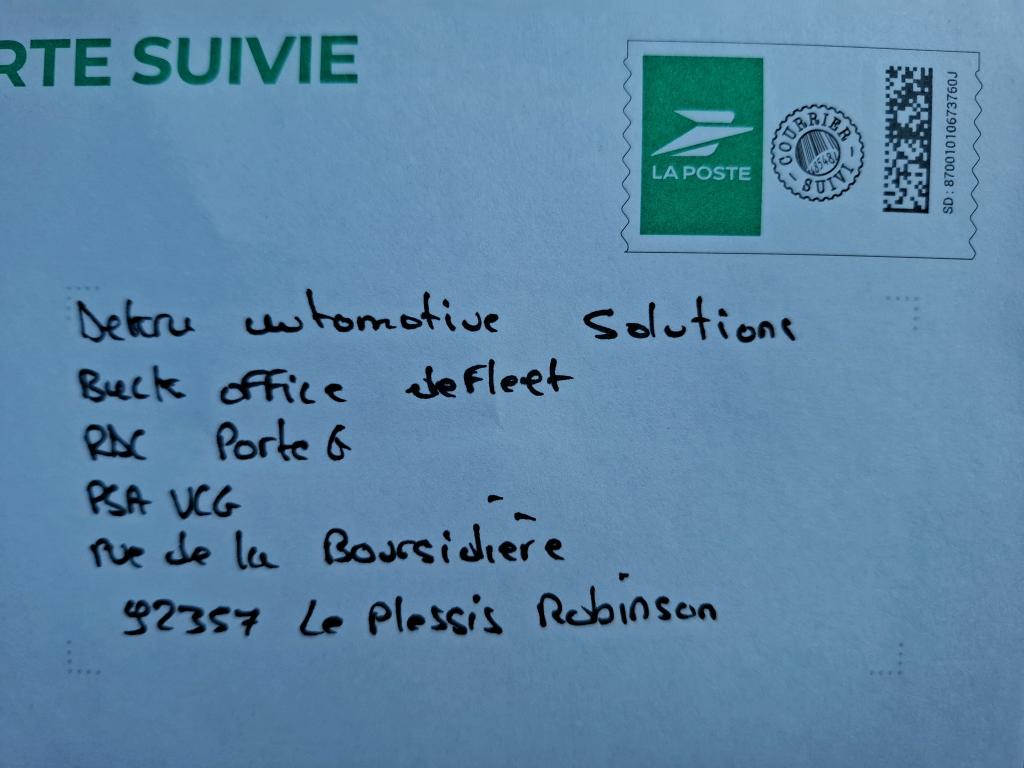 RTE SUIVIE
LA POSTE
COURRIER SUIVI
SD : 87001010673760J
automotive Solutions
Back office deFleet
RDC Porte G
PSA VCG
rue de la Boursidière
92357 Le Plessis Robinson